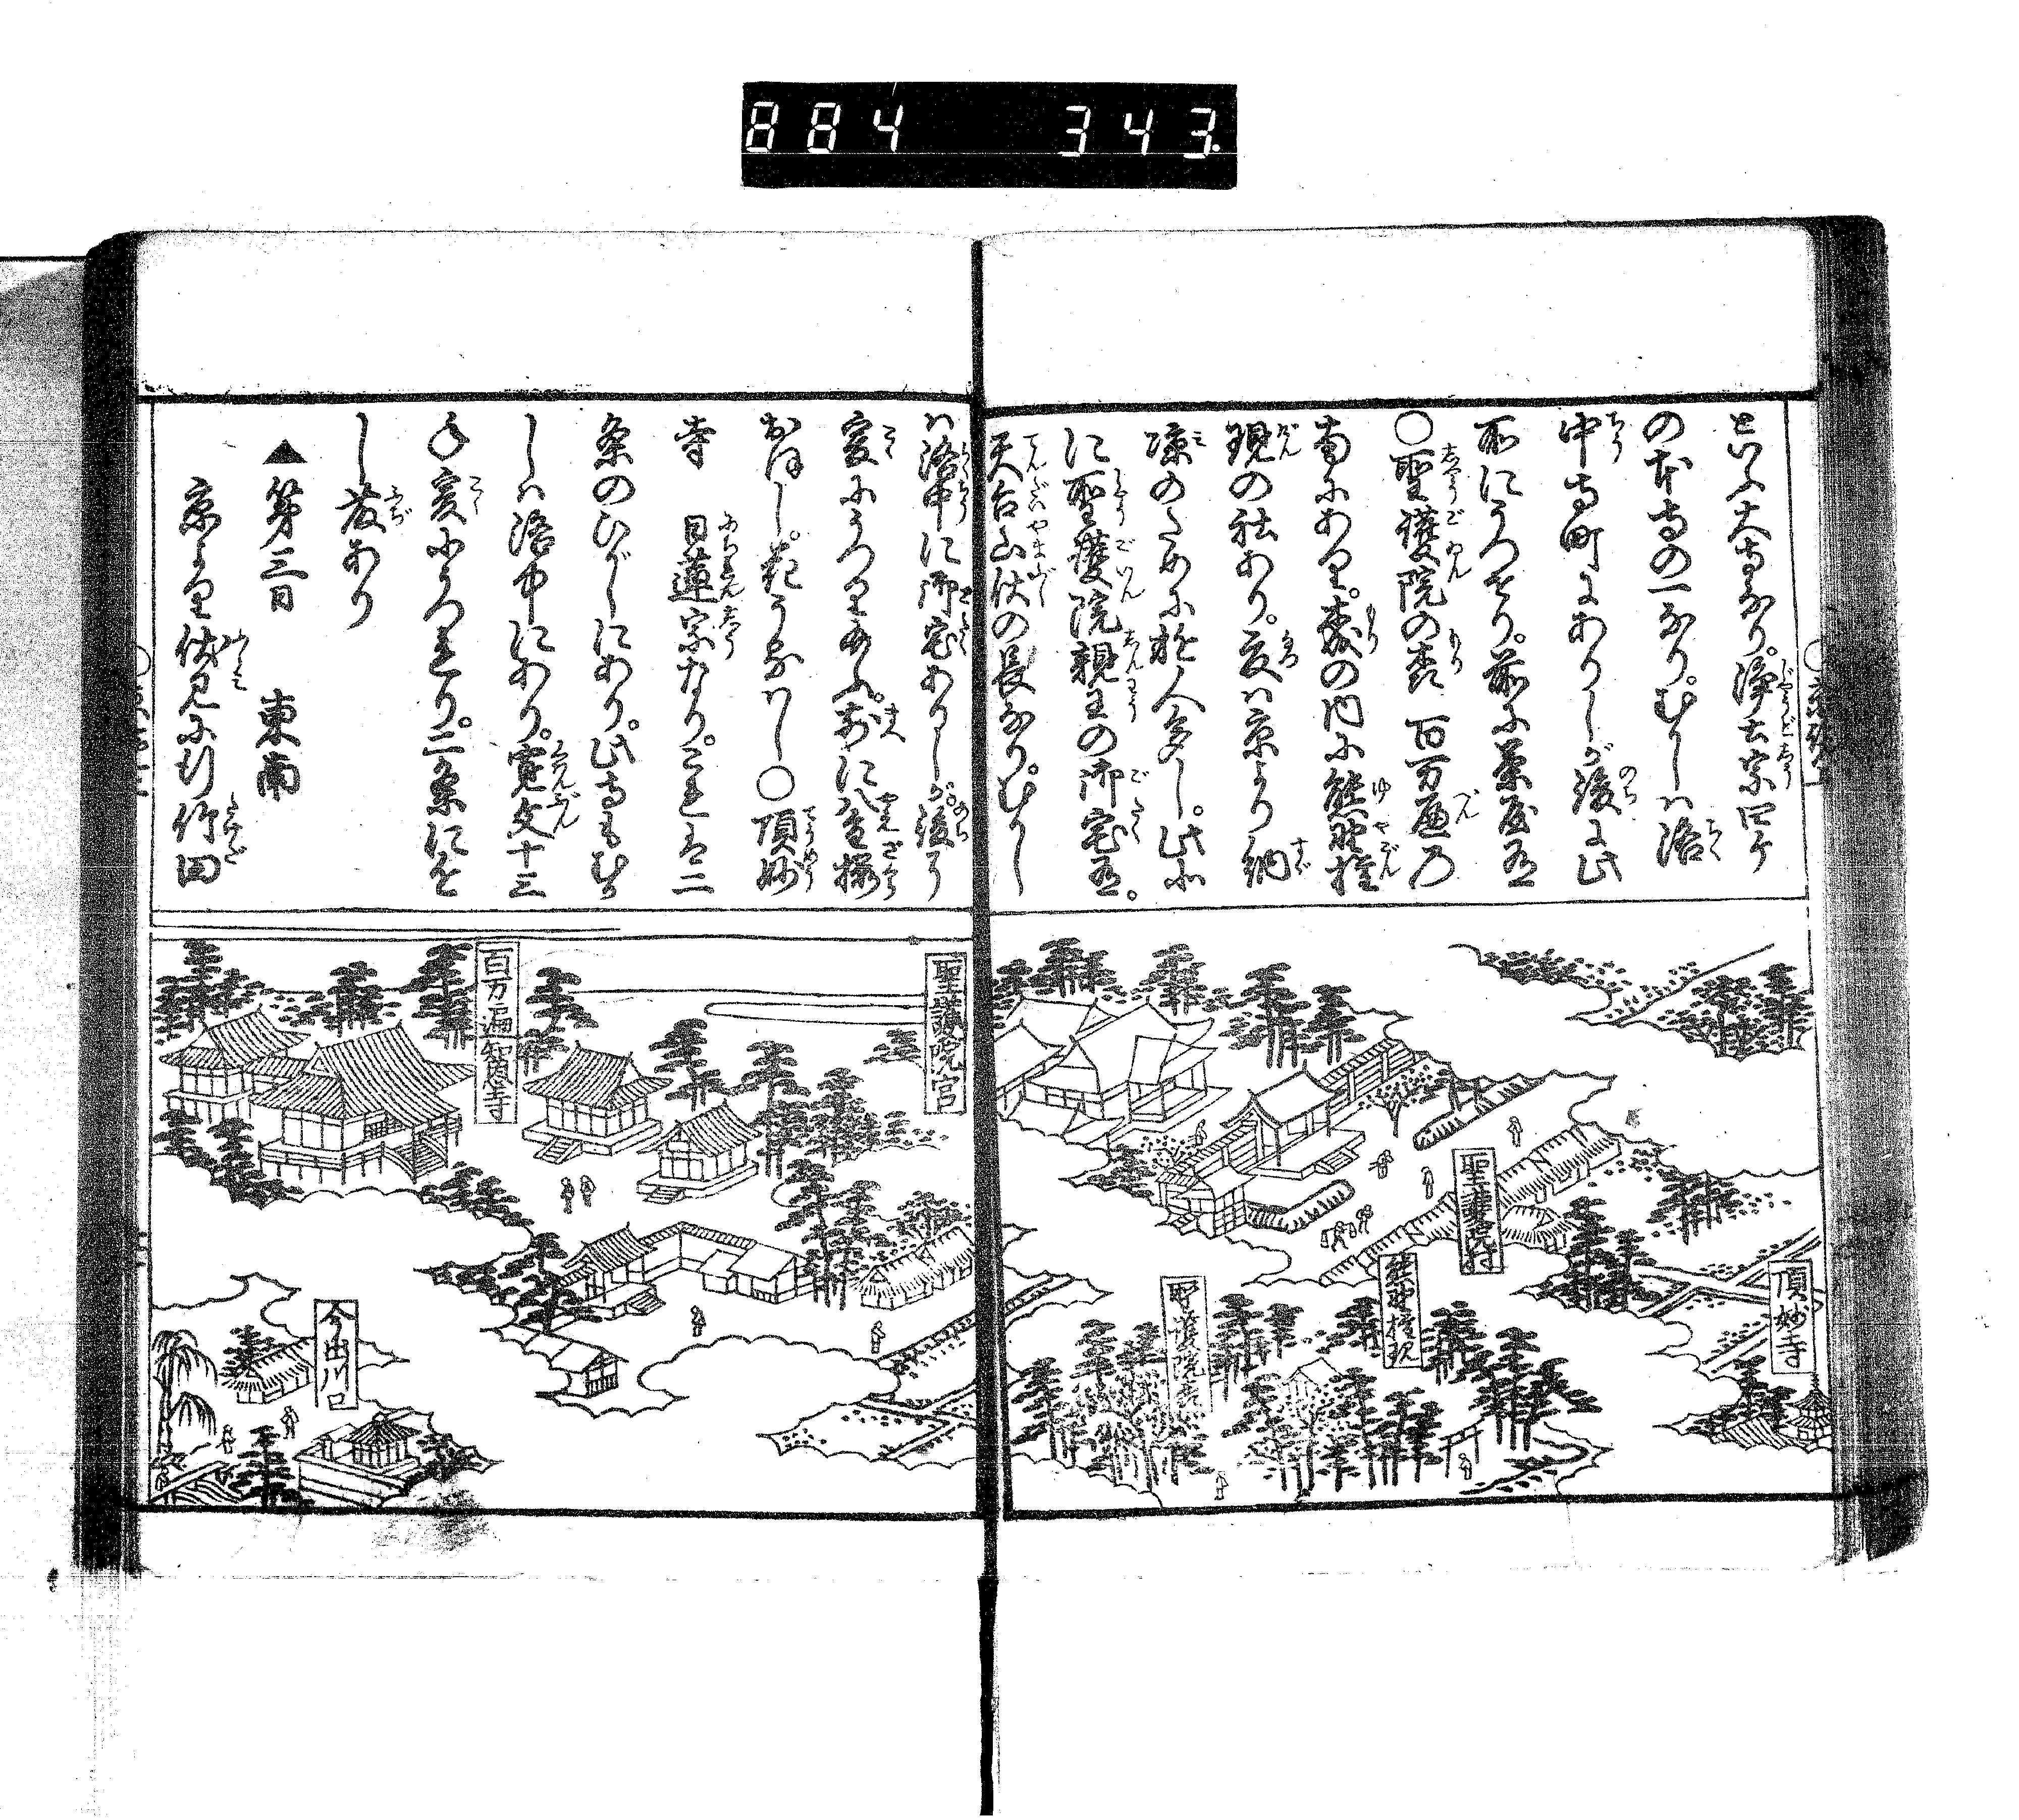 884 343
といふ大寺なり。浄土宗四ケ
の本寺の一なり。むかしハ洛
中寺町にありしが後に此
所にうつせり。前に茶屋有
○聖護院の森 百万遍の
南にあり。森の内に熊野権
現の社あり。夏ハ京より納
凉のために遊人多し。此北
に聖護院親王の御宅有。
天台山伏の長なり。むかし
ハ洛中に御宅ありしが。後に
爰にうつり給ふ。前に八重桜
おほし。花うるハし○頂妙
寺 日蓮宗なり。これは二
条のひがしにあり。此寺もむか
しハ洛中にあり。寛文十三
年爰にうつれり。二条にを
し藤あり
▲第三日 東南
京より伏見に行竹田
聖護院宮
百万遍智恩寺
今出川口
聖護院村
熊野権現
聖護院森
頂妙寺